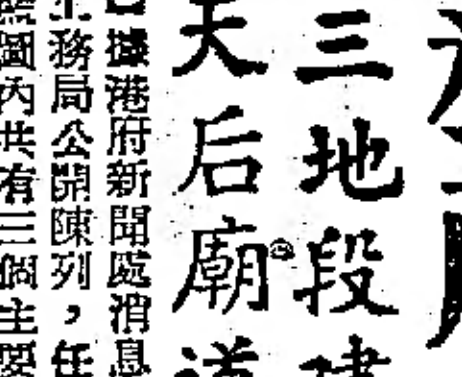 三地段建
天后廟道
據港府新聞處消息
務局公開陳列，任
圖內共有三個主要